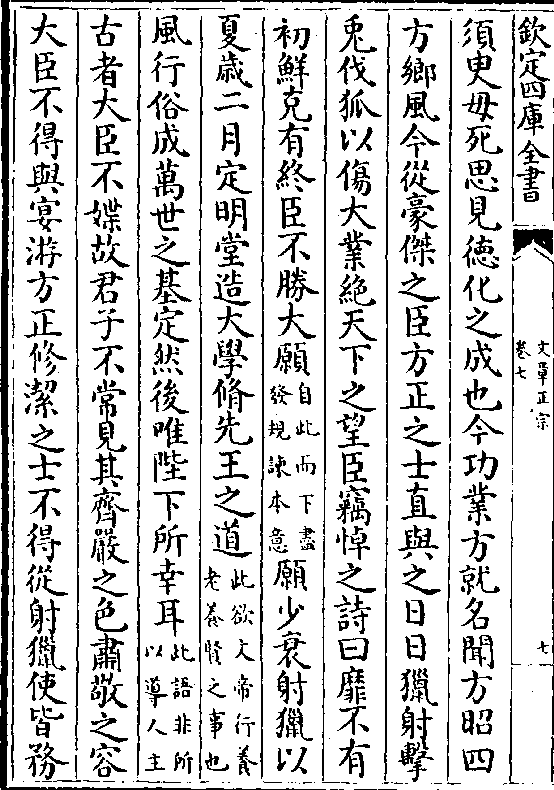 欽定四庫全書
文章正宗
卷七
七
須臾毋死思見德化之成也今功業方就名聞方昭四
方鄉風今從豪傑之臣方正之士直與之日日獵射擊
兎伐狐以傷大業絶天下之望臣竊悼之詩曰靡不有
初鮮克有終臣不勝大願自此而下盡發規諫本意願少衰射獵以
夏歳二月定明堂造大學脩先王之道此欲文帝行養老養賢之事也
風行俗成萬世之基定然後唯陛下所幸耳此語非所以導人主
古者大臣不媟故君子不常見其齊嚴之色肅敬之容
大臣不得與宴游方正修潔之士不得從射獵使皆務